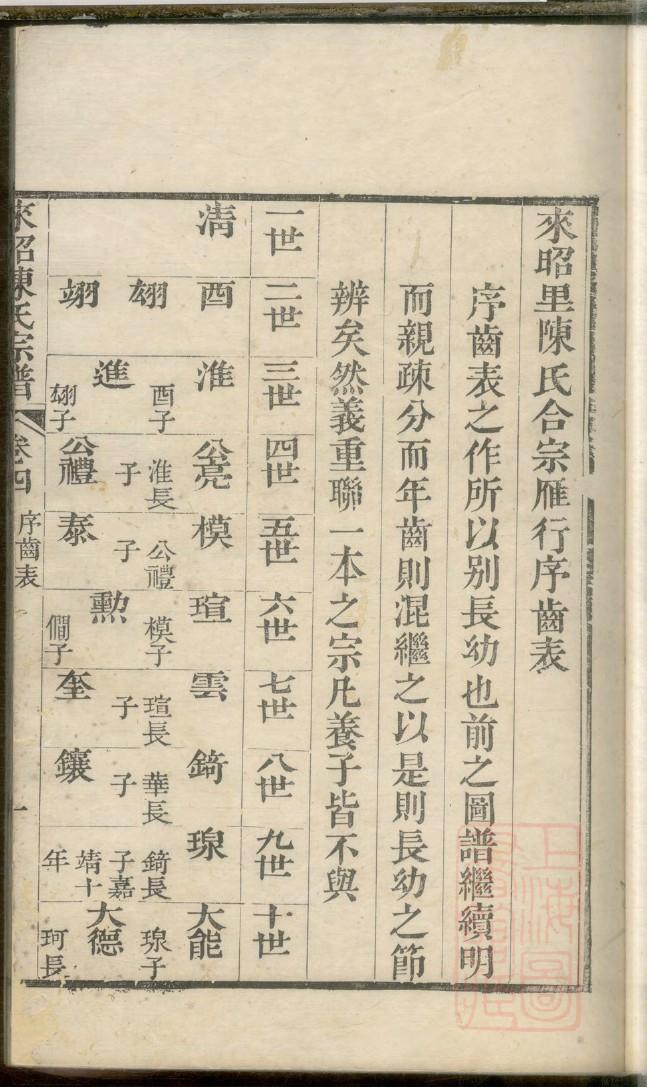 來昭里陳氏合宗雁行序齒表
序齒表之作所以别長幼也前之圖譜繼續明
而親疎分而年齒則混繼之以是則長幼之節
辨矣然義重聯一本之宗凡養子皆不與
一世 二世 三世 四世 五世 六世 七世 八世 九世 十世
清 酉 淮 公亮 模 瑄 雲 錡 瑔 大能
酉子 淮長子 公禮子 模子 瑄長子 華長子 錡長子嘉靖十年 瑔子
翃 進 勲 大德
翃子 僴子 珂長
翊 公禮 泰 奎 鑲
來昭陳氏宗譜 卷四 序齒表 一
上海圖書館藏